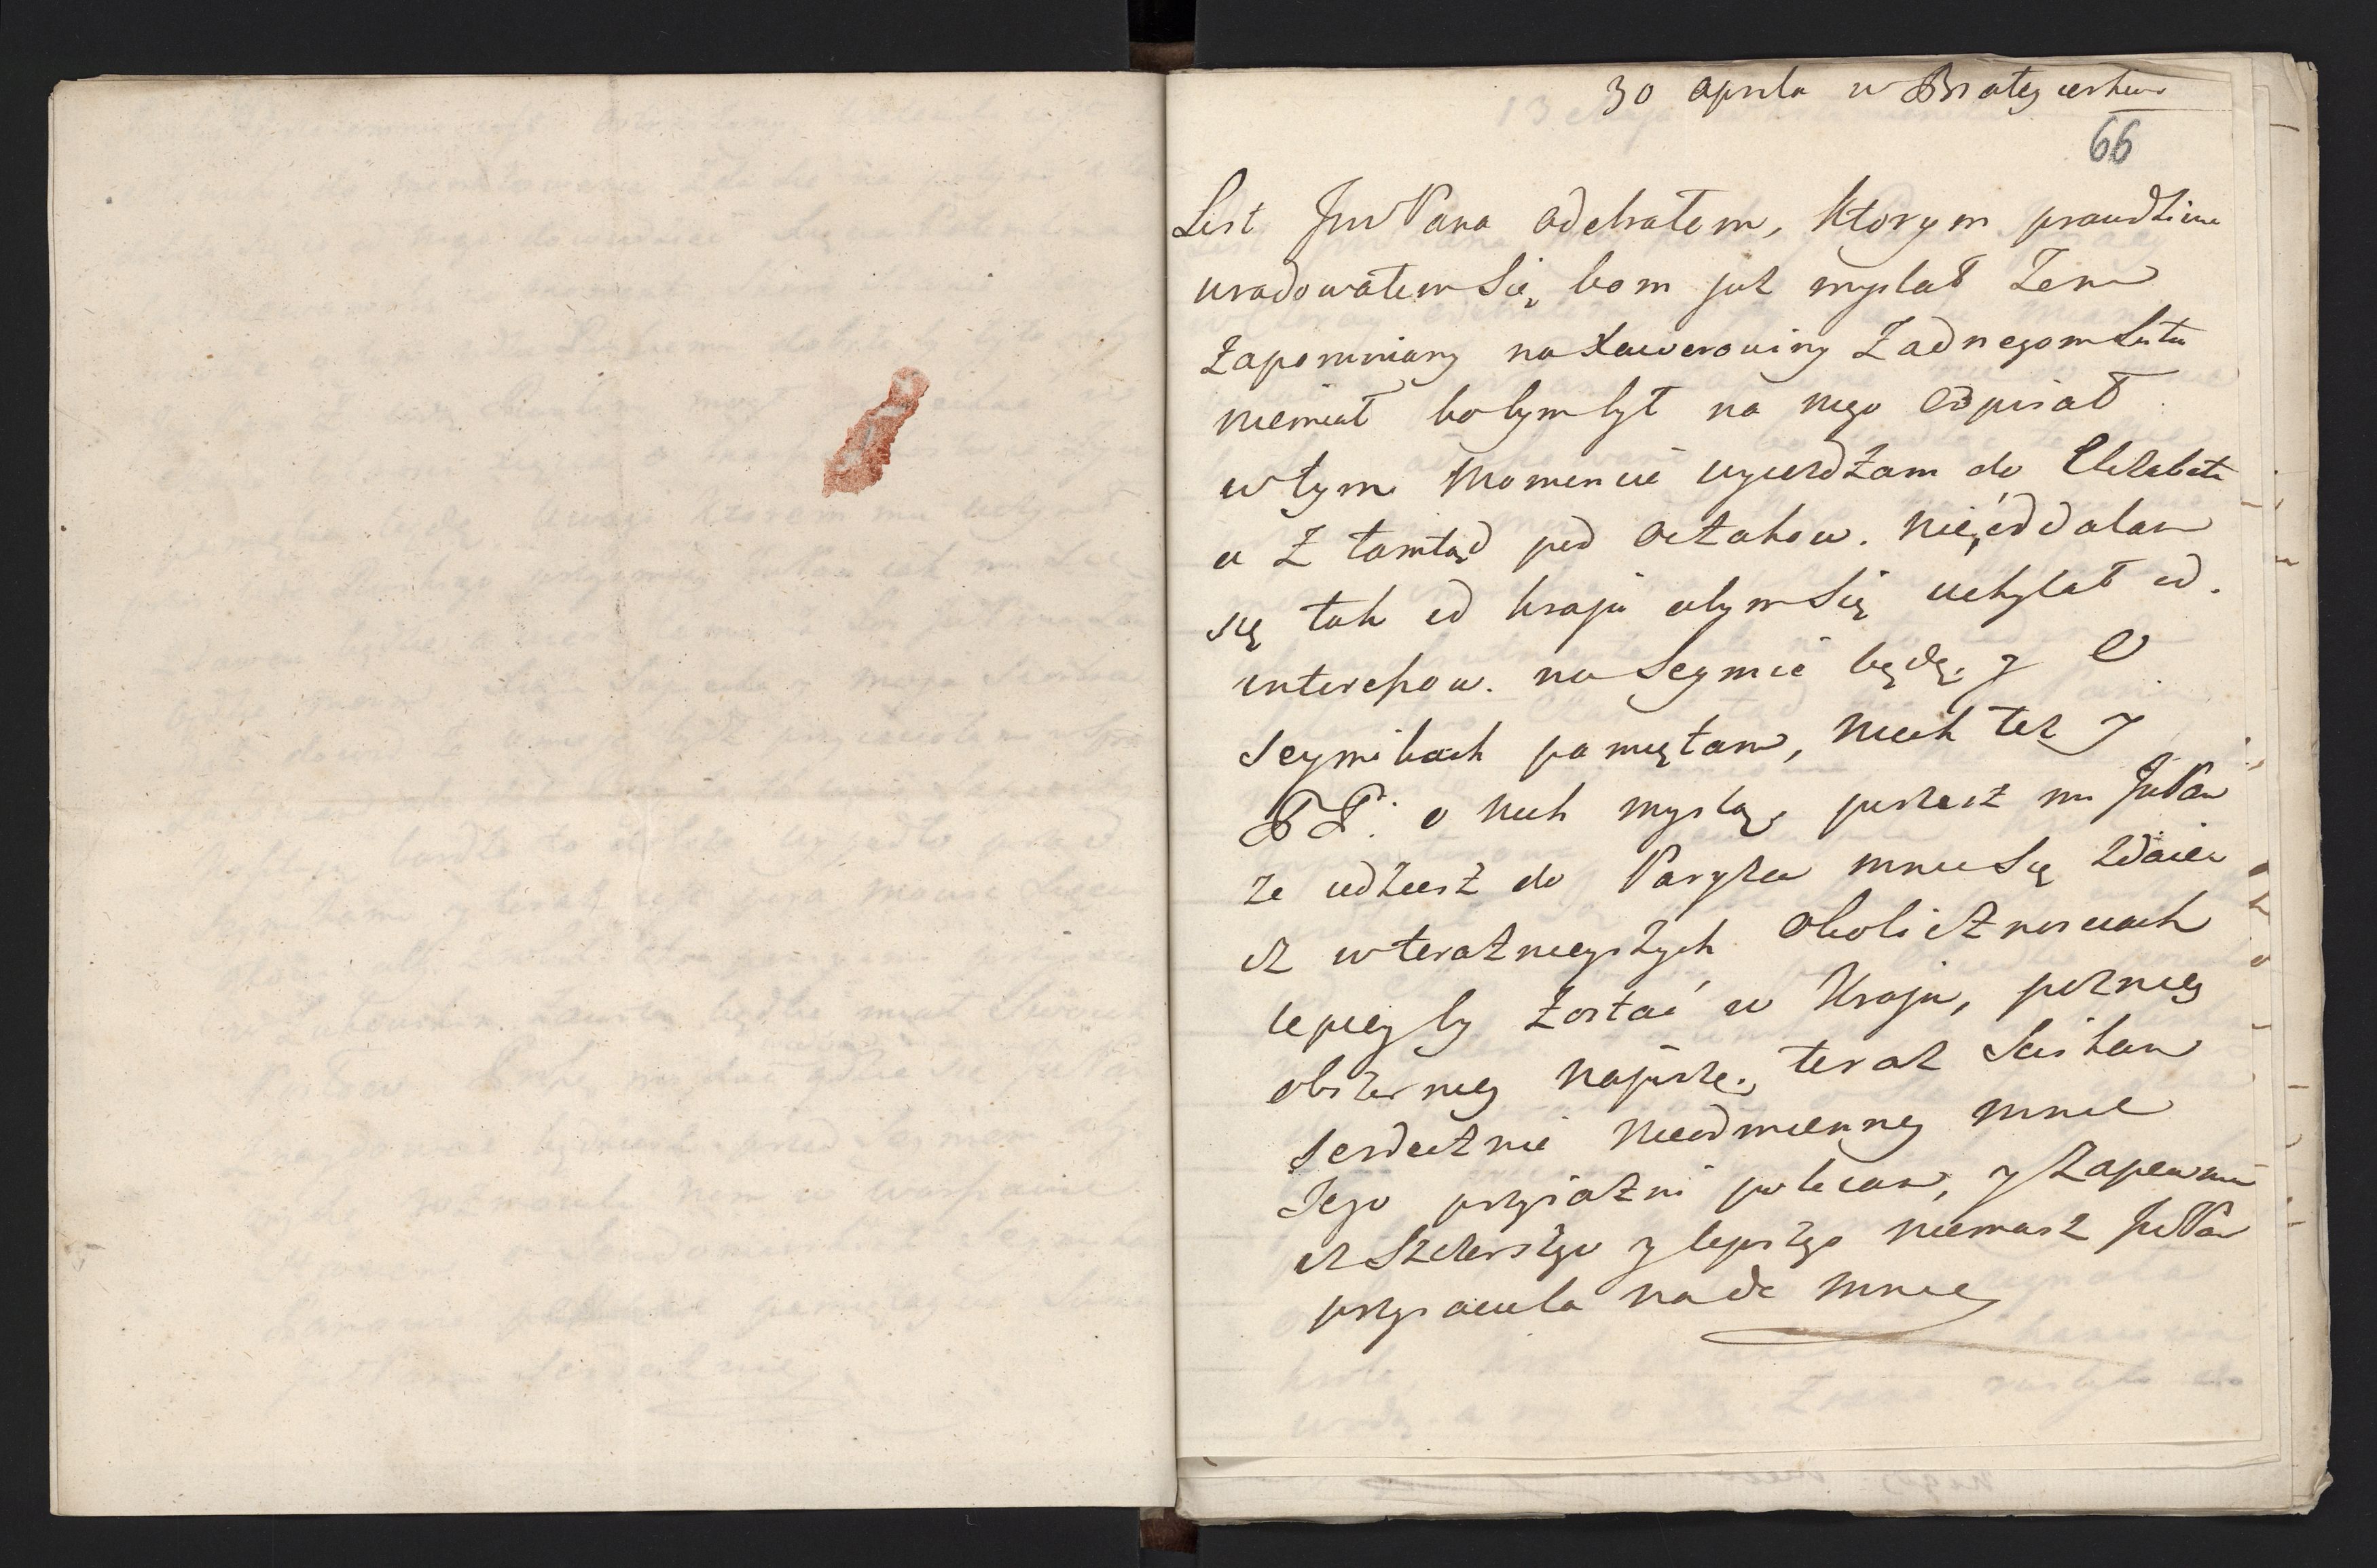 30 Aprila w
66
List JW Pana odebrałem, ktorym prawdziwie
uradowałem się, bom juz myslał żem
zapomniany na Xawerowiny żadnegom Listu
niemiał bobym był na niego odpisał
w tym momencie wyieżdżam do Elizabetu
a z tamtąd pod Oczakow. nie oddalam
się tak od kraju abym się uchylał od
interessow. na Seymie będę, y o
seymikach pamiętam, niech też y
PP. o nich myslą, piszesz mi JW Pan
że iedziesz do Paryża mnie się zdaie
iż w teraznieyszych okolicznosciach
lepiey by zostać w Kraju, pozniey
obszerniey napiszę, teraz sciskam
serdecznie nieodmienney mnie
Jego przyiazni polecam, y zapewnie
iż szczerszego y lepszego niemasz JW Pan
przyiaciela nade mnie